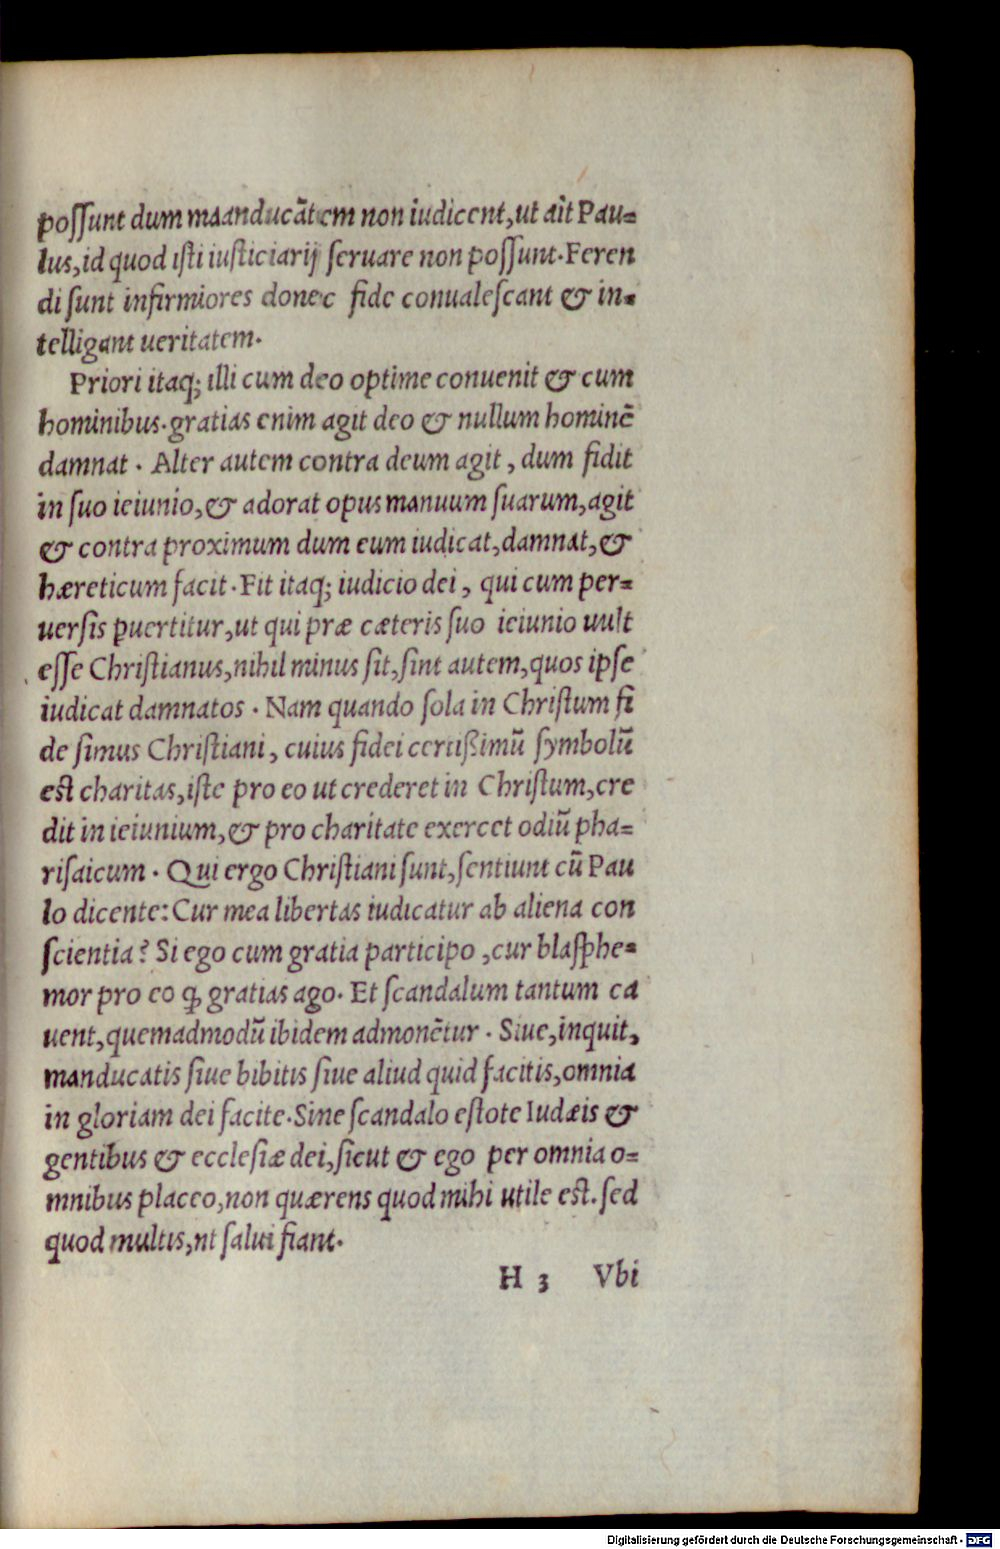 possunt dum maanducātem non iudicent, ut ait Pau=
lus, id quod isti iusticiarij seruare non possunt. Feren
di sunt infirmiores donec fide conualescant & in=
telligant ueritatem.
Priori itaq; illi cum deo optime conuenit & cum
hominibus. gratias enim agit deo & nullum hominē
damnat. Alter autem contra deum agit, dum fidit
in suo ieiunio, & adorat opus manuum suarum, agit
& contra proximum dum eum iudicat, damnat, &
hæreticum facit. Fit itaq; iudicio dei, qui cum per=
uersis ꝑuertitur, ut qui præ cæteris suo ieiunio uult
esse Christianus, nihil minus sit, sint autem, quos ipse
iudicat damnatos. Nam quando sola in Christum fi
de simus Christiani, cuius fidei certißimū symbolū
est charitas, iste pro eo ut crederet in Christum, cre
dit in ieiunium, & pro charitate exercet odiū pha=
risaicum. Qui ergo Christiani sunt, sentiunt cū Pau
lo dicente: Cur mea libertas iudicatur ab aliena con
scientia? Si ego cum gratia participo, cur blasphe=
mor pro eo ꝙ gratias ago. Et scandalum tantum ca
uent, quemadmodū ibidem admonētur. Siue, inquit,
manducatis siue bibitis siue aliud quid facitis, omnia
in gloriam dei facite. Sine scandalo estote Iudæis &
gentibus & ecclesiæ dei, sicut & ego per omnia o=
mnibus placeo, non quærens quod mihi utile est. sed
quod multis, nt salui fiant.
H 3 Vbi
Digitalisierung gefördert durch die Deutsche Forschungsgemeinschaft - DFG